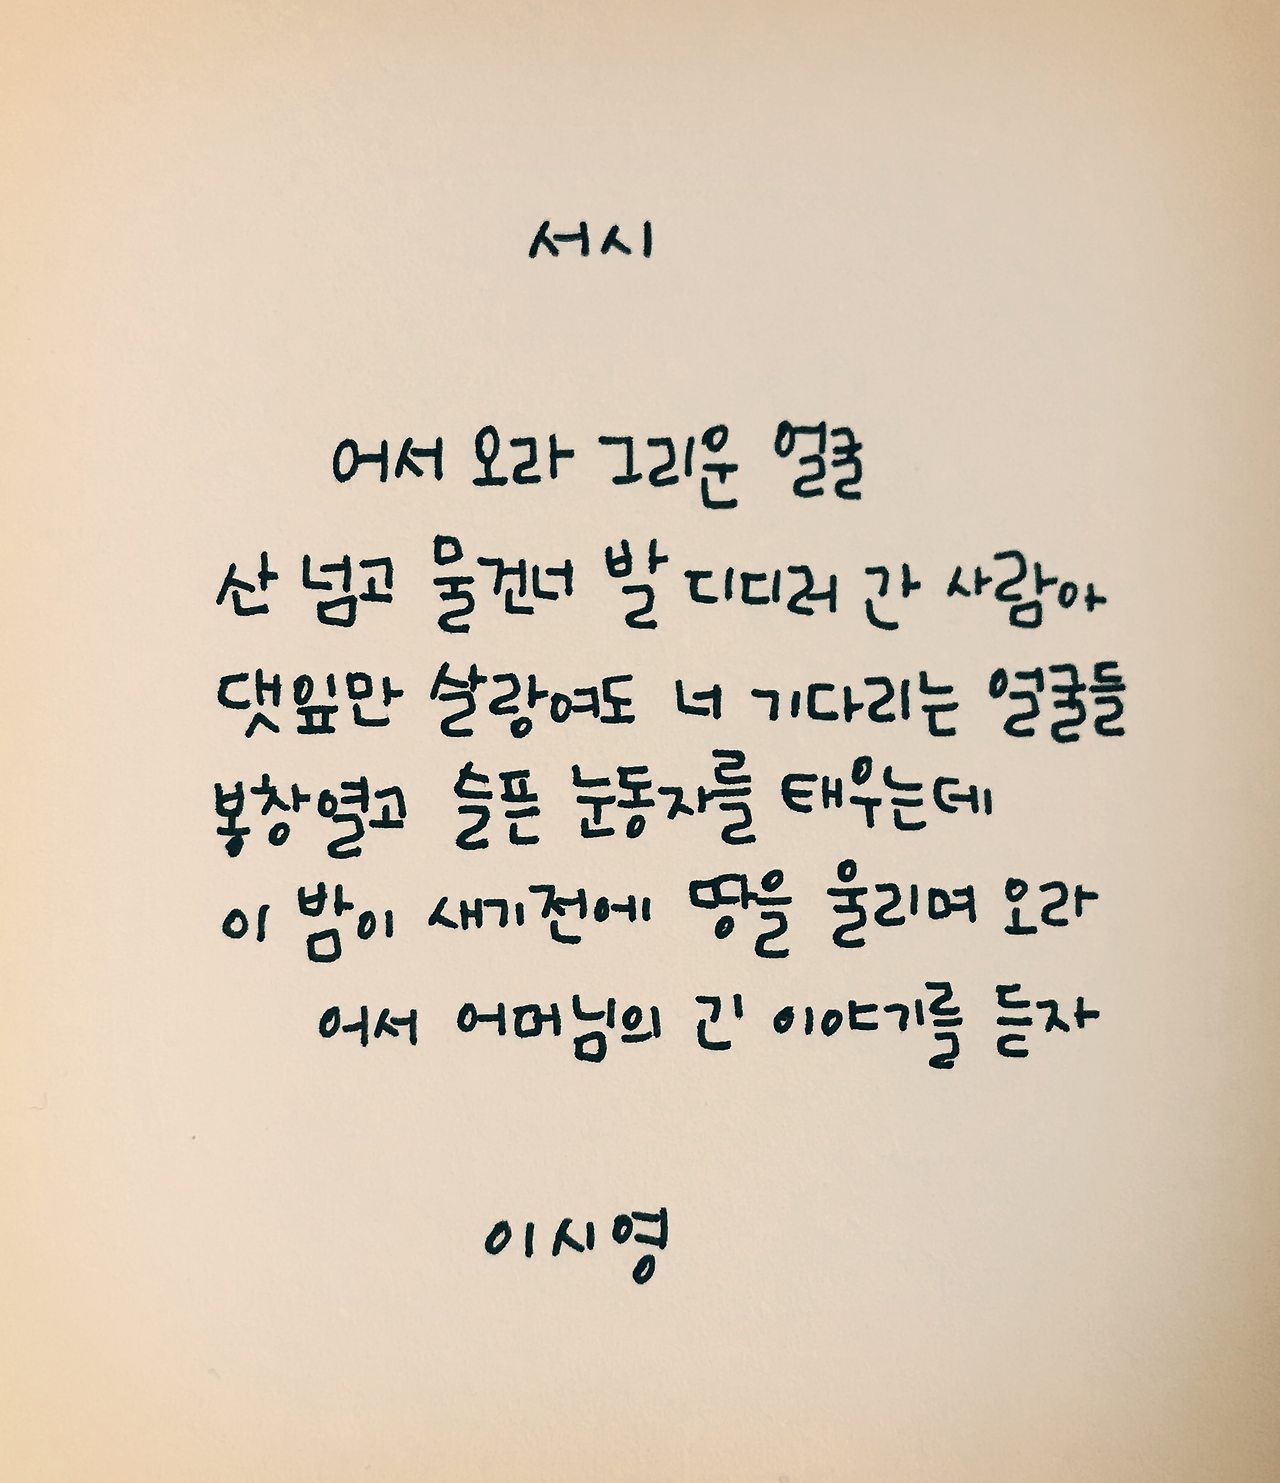 서시
어서 오라 그리운 얼굴
산 넘고 물건너 발 디디러 간 사람아
댓잎만 살랑여도 너 기다리는 얼굴들
봉창열고 슬픈 눈동자를 태우는데
이 밤이 새기전에 땅을 울리며 오라
어서 어머님의 긴 이야기를 듣자
이시영